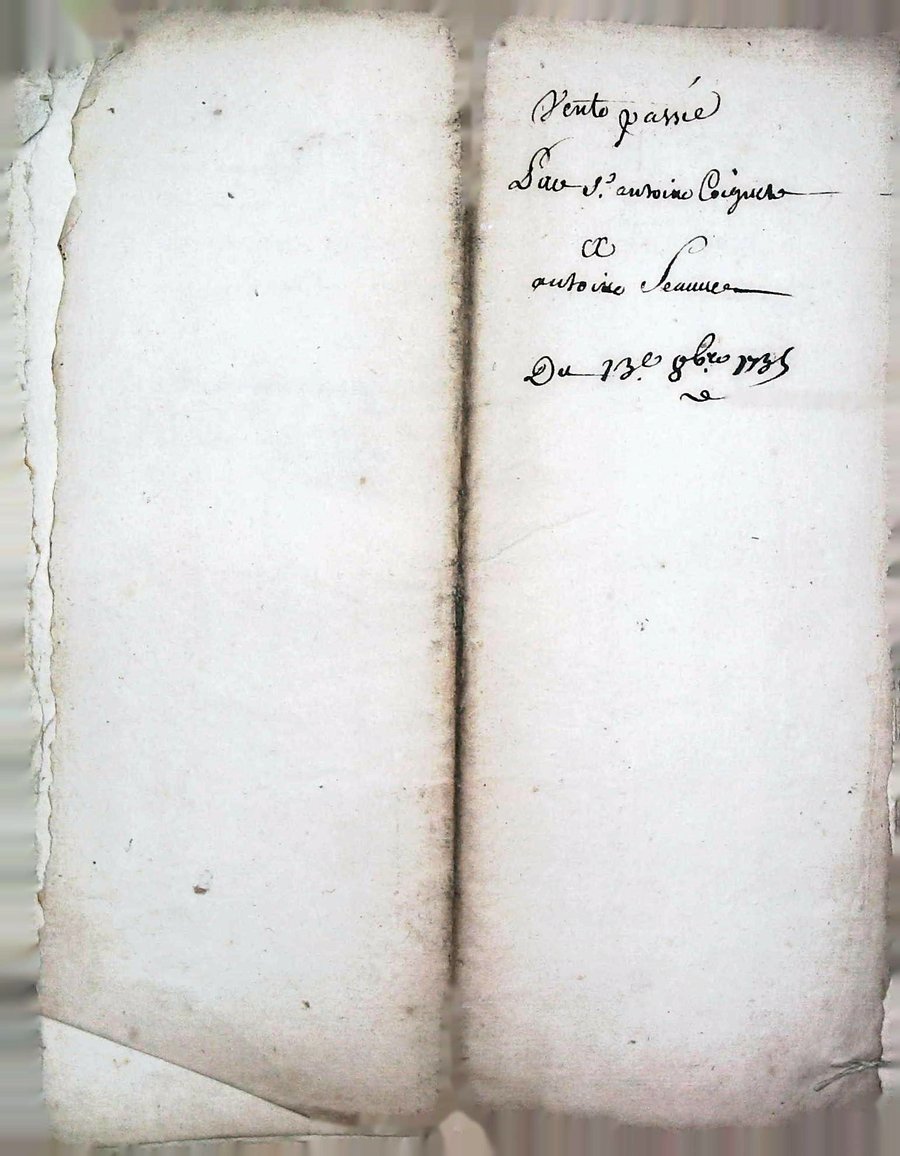 Vente passée
Par Sr. antoine Coignet
a
antoine
Du 13e. 8bre 1735